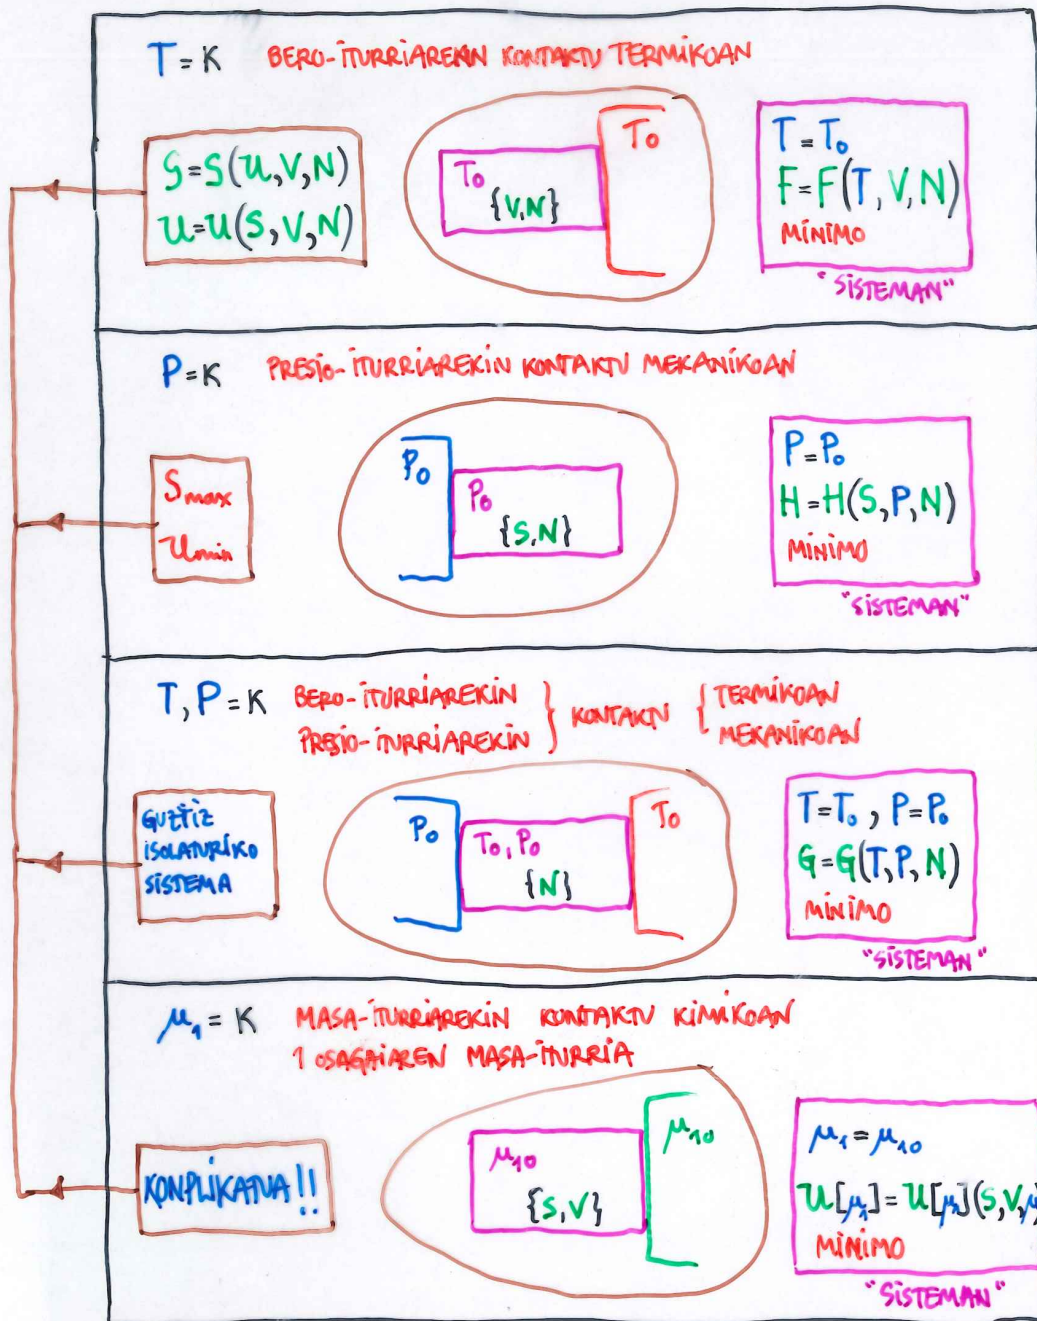 T = K BERO-ITURRIAREKIN KONTAKTU TERMIKOAN
S=S(U,V,N)
U=U(S,V,N)
T₀
{V,N}
T₀
T=T₀
F=F(T,V,N)
MINIMO
"SISTEMAN"
P=K PRESIO-ITURRIAREKIN KONTAKTU MEKANIKOAN
Smax
Umin
P₀
P₀
{S,N}
P=P₀
H=H(S,P,N)
MINIMO
"SISTEMAN"
T,P=K BERO-ITURRIAREKIN } KONTAKTU { TERMIKOAN
PRESIO-ITURRIAREKIN MEKANIKOAN
GUZTIZ
ISOLATURIKO
SISTEMA
P₀
T₀,P₀
{N}
T₀
T=T₀, P=P₀
G=G(T,P,N)
MINIMO
"SISTEMAN"
μ₁=K MASA-ITURRIAREKIN KONTAKTU KIMIKOAN
1 OSAGAIAREN MASA-ITURRIA
KONPLIKATUA!!
μ₁₀
{S,V}
μ₁₀
μ₁=μ₁₀
U[μ₁]=U[μ₁](S,V,μ
MINIMO
"SISTEMAN"